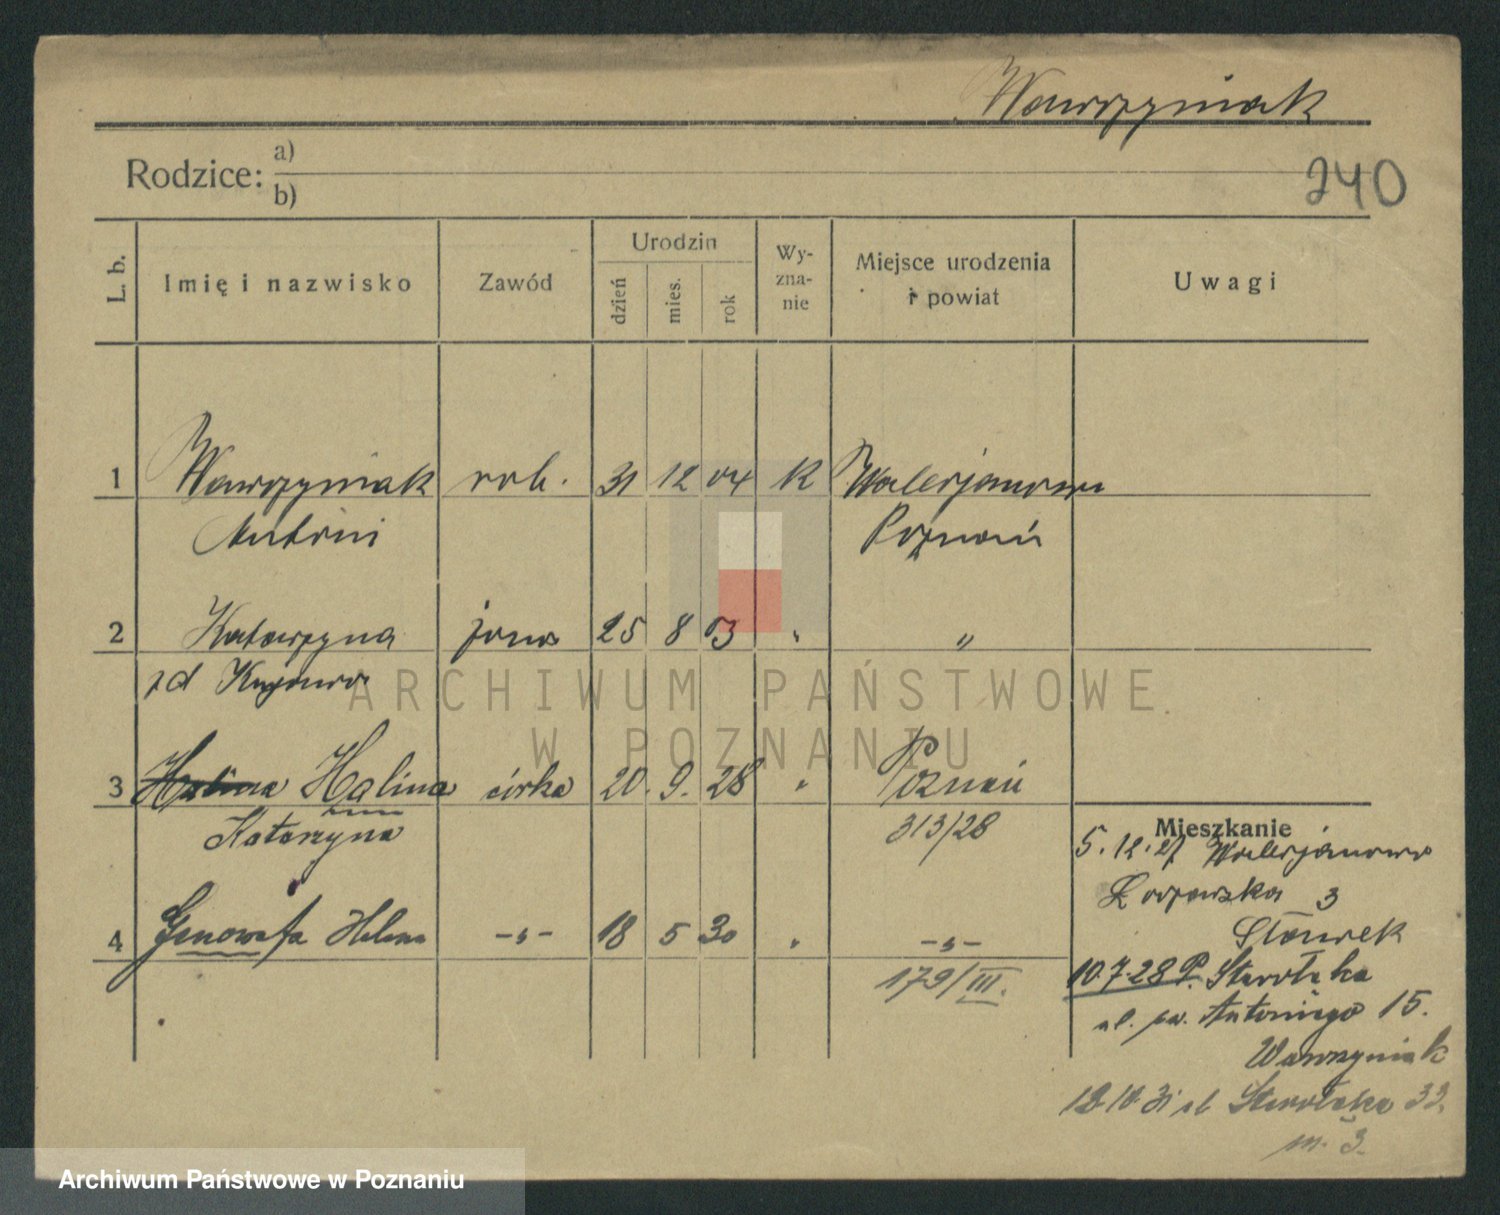 Wawrzyniak
Rodzice: a)
b)
240
L. b. Imię i nazwisko Zawód Urodzin dzień mies. rok Wy-zna-nie Miejsce urodzenia i powiat Uwagi
1 Wawrzyniak rob. 31 12 04 K Walerjanowo
Antoni Poznań
2 Katarzyna żona 25 8 03 " "
zd
3 Halina Halina córka 20. 9. 28 " Poznań
Katarzyna 313/28
Mieszkanie
5.12.27 Walerjanowo
3
4 Genowefa Helena -„- 18 5 30 " -„-
179/III.
10.7.28 P. Starołęka
ul. św. Antoniego 15.
Wawrzyniak
12.10.31 ul Starołęka 33.
m. 3.
ARCHIWUM PAŃSTWOWE
W POZNANIU
Archiwum Państwowe w Poznaniu